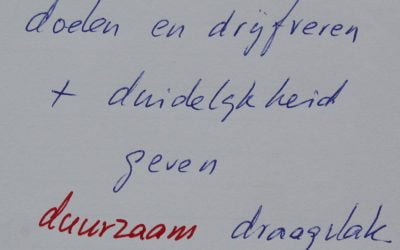 doelen en drijfveren
+ duidelijkheid
geven
duurzaam draagvlak